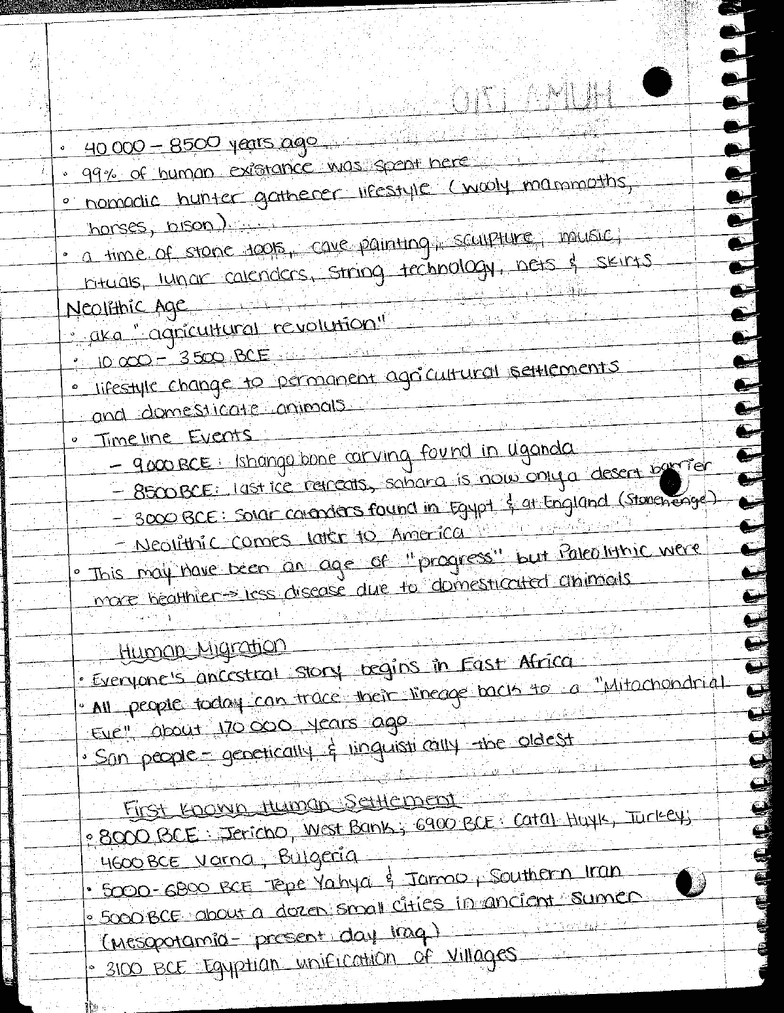 HUMA 1710
• 40 000 – 8500 years ago
• 99% of human existance was spent here
• nomadic hunter gatherer lifestyle (wooly mammoths,
horses, bison)
• a time of stone tools, cave painting, sculpture, music,
rituals, lunar calenders, string technology, nets & skirts
Neolithic Age
• aka "agricultural revolution"
• 10 000 – 3500 BCE
• lifestyle change to permanent agricultural settlements
and domesticate animals
• Timeline Events
– 9000 BCE: Ishango bone carving found in Uganda
– 8500 BCE: last ice retreats, sahara is now only a desert barrier
– 3000 BCE: Solar calenders found in Egypt & at England (Stonehenge)
– Neolithic comes later to America
• This may have been an age of "progress" but Paleolithic were
more healthier → less disease due to domesticated animals
Human Migration
• Everyone's ancestral story begins in East Africa
• All people today can trace their lineage back to a "Mitochondrial
Eve" about 170 000 years ago
• San people – genetically & linguistically the oldest
First Known Human Settlement
• 8000 BCE: Jericho, West Bank; 6900 BCE: Catal Huyk, Turkey;
4600 BCE Varna, Bulgeria
• 5000-6800 BCE Tepe Yahya & Jarmo, Southern Iran
• 5000 BCE about a dozen small cities in ancient Sumer
(Mesopotamia – present day Iraq)
• 3100 BCE Egyptian unification of Villages